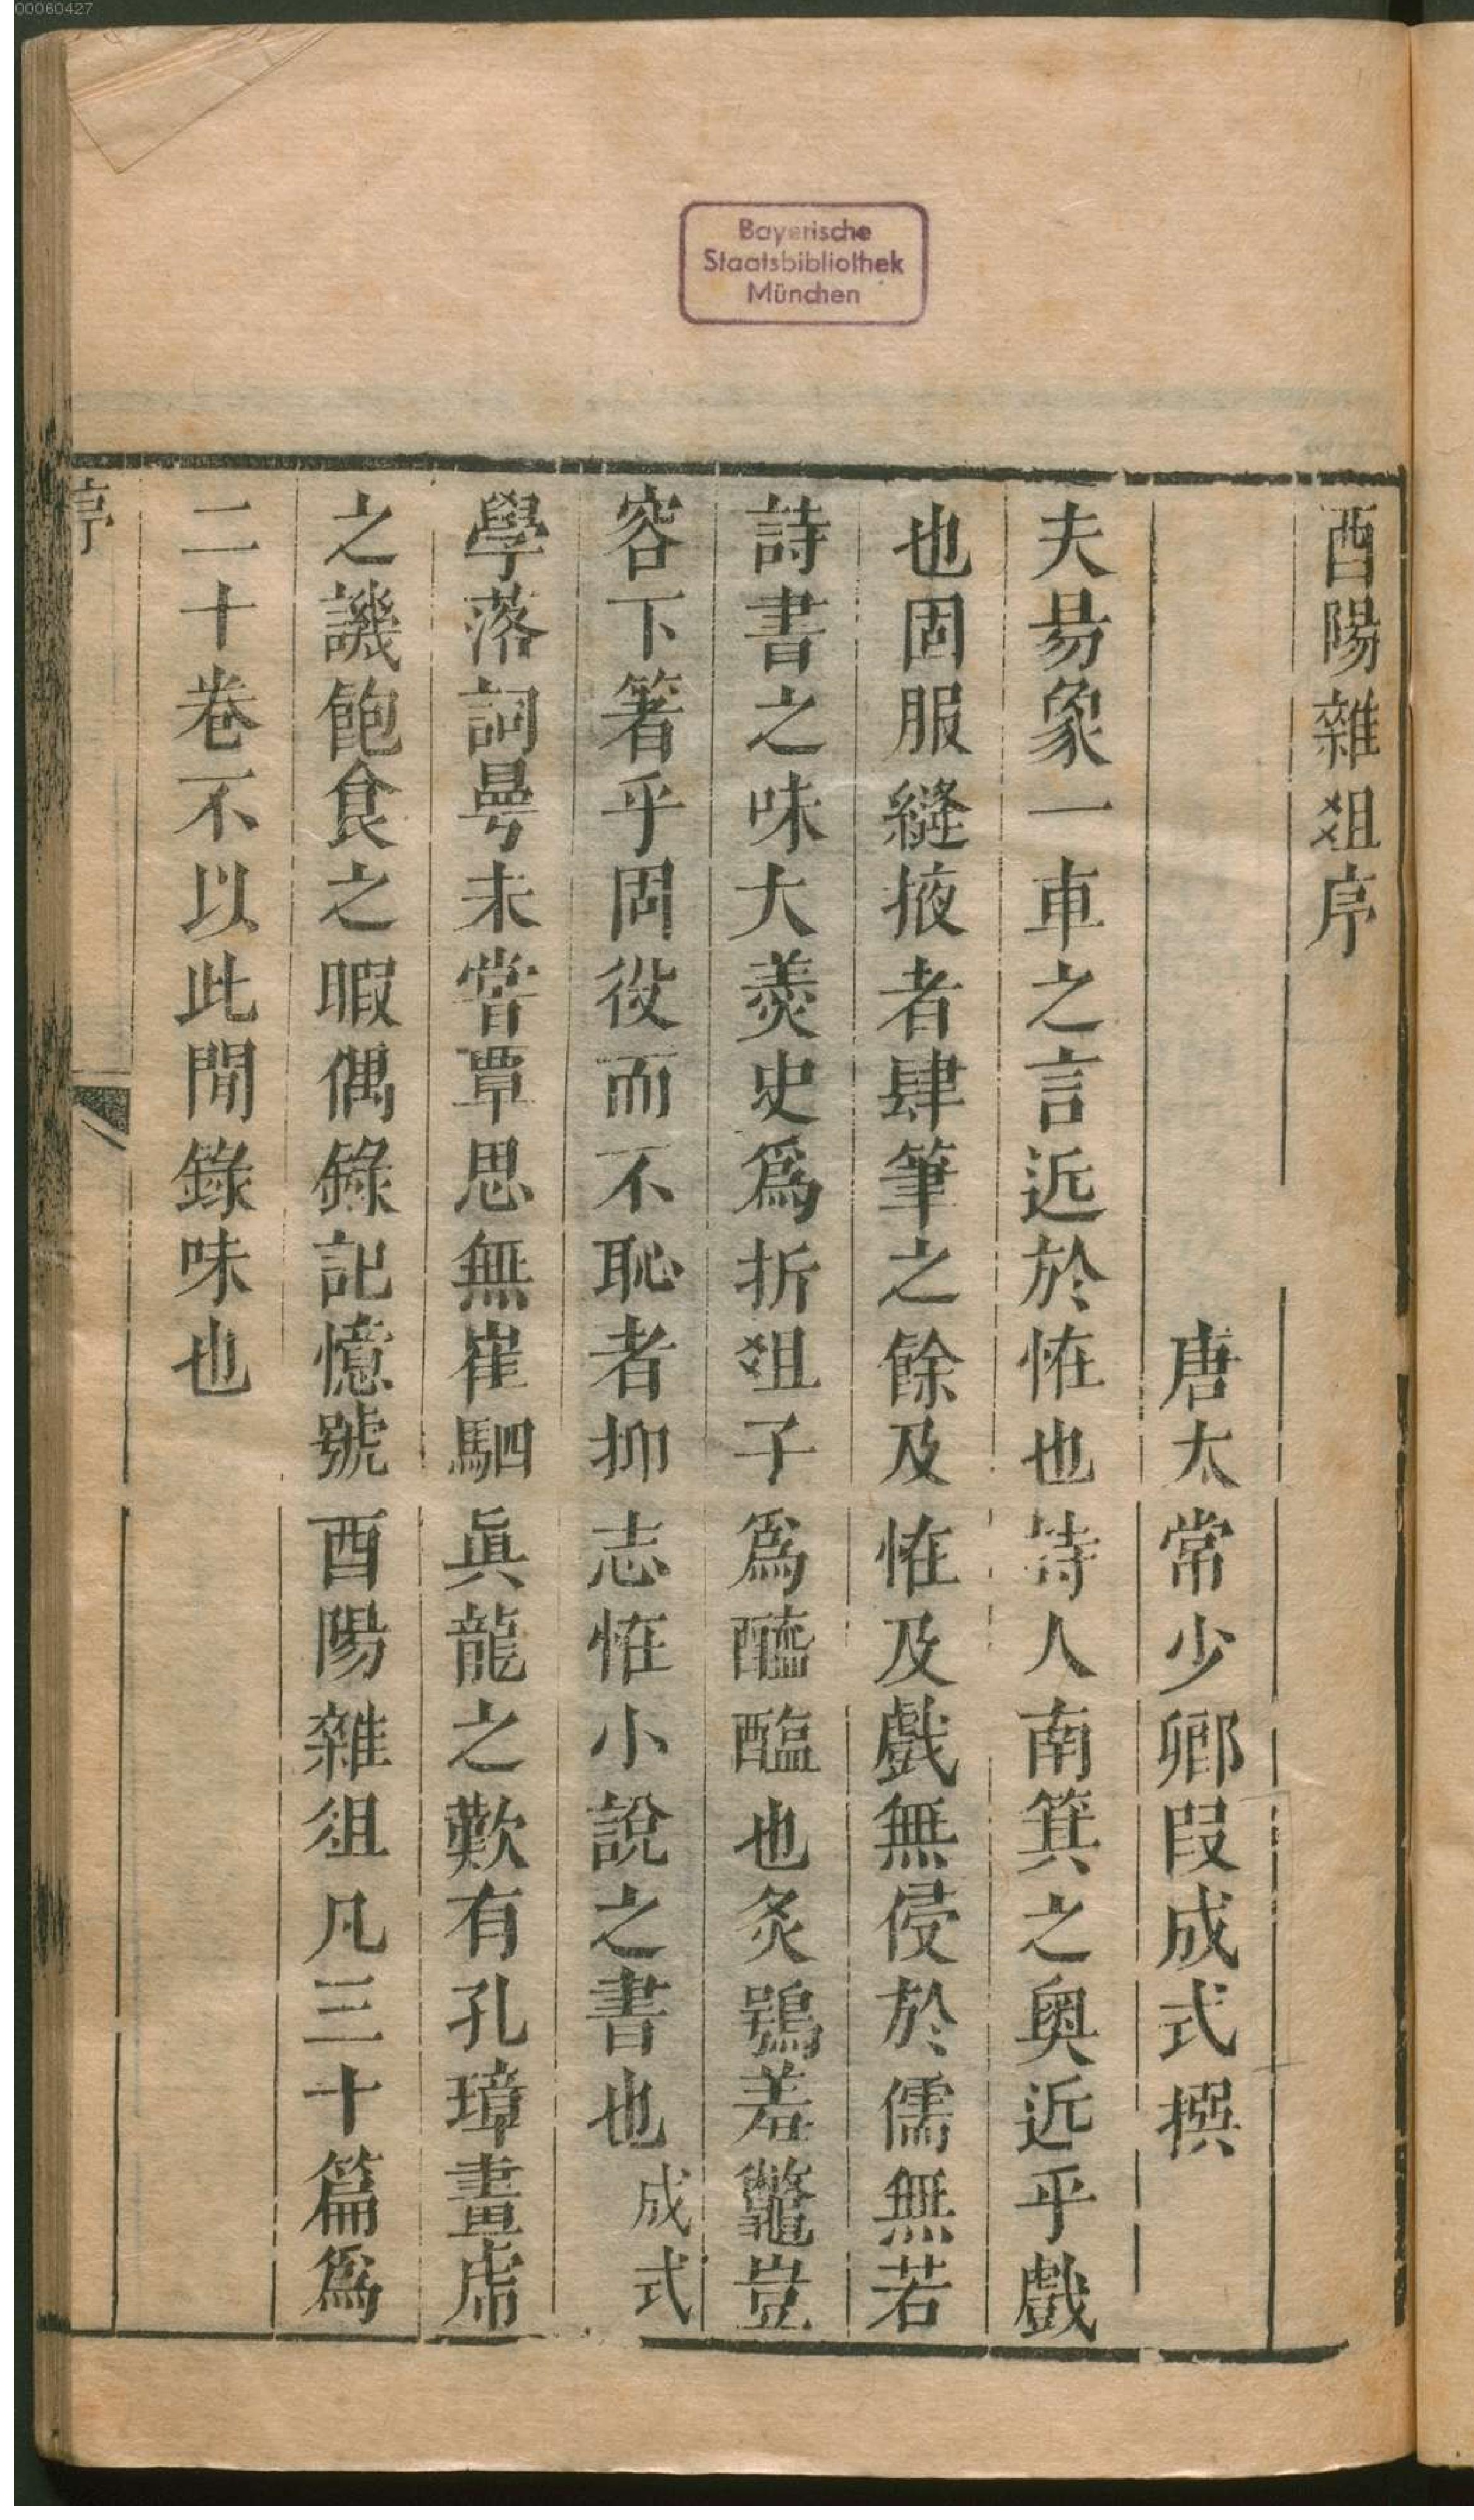 00060427
Bayerische
Staatsbibliothek
München
酉陽雜俎序
唐太常少卿段成式撰
夫易象一車之言近於恠也詩人南箕之奧近乎戲
也固服縫掖者肆筆之餘及恠及戲無侵於儒無若
詩書之味大羹史為折俎子為醯醢也炙鴞羞鼈豈
容下箸乎固役而不恥者抑志恠小說之書也成式
學落詞曼未嘗覃思無崔駰眞龍之歎有孔璋畫虎
之譏飽食之暇偶錄記憶號酉陽雜俎凡三十篇為
二十卷不以此間錄味也
序